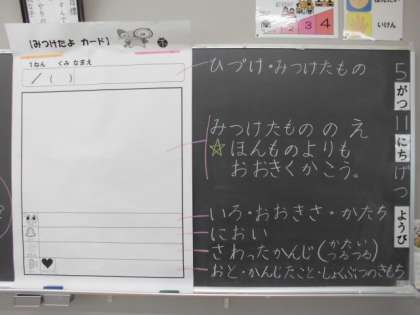 【みつけたよ カード】
1ねん くみ なまえ
／（ ）
ひづけ・みつけたもの
みつけたもの の え
☆ ほんものよりも
おおきくかこう。
いろ・おおきさ・かたち
におい
さわったかんじ(かたい つるつる)
おと・かんじたこと・しょくぶつのきもち
5
がつ
11
にち
げつ
ようび
3 4
いけん